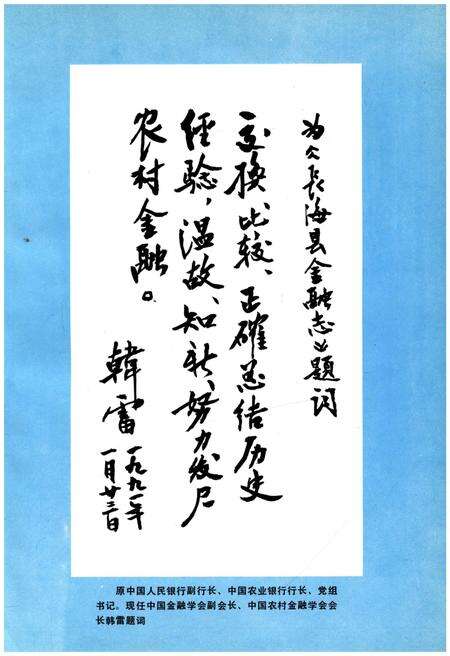 为《长海县金融志》题词
交换、比较、正确总结历史
经验，温故、知新、努力发展
农村金融。
韩雷
一九九一年
一月廿三日
原中国人民银行副行长、中国农业银行行长、党组
书记。现任中国金融学会副会长、中国农村金融学会会
长韩雷题词